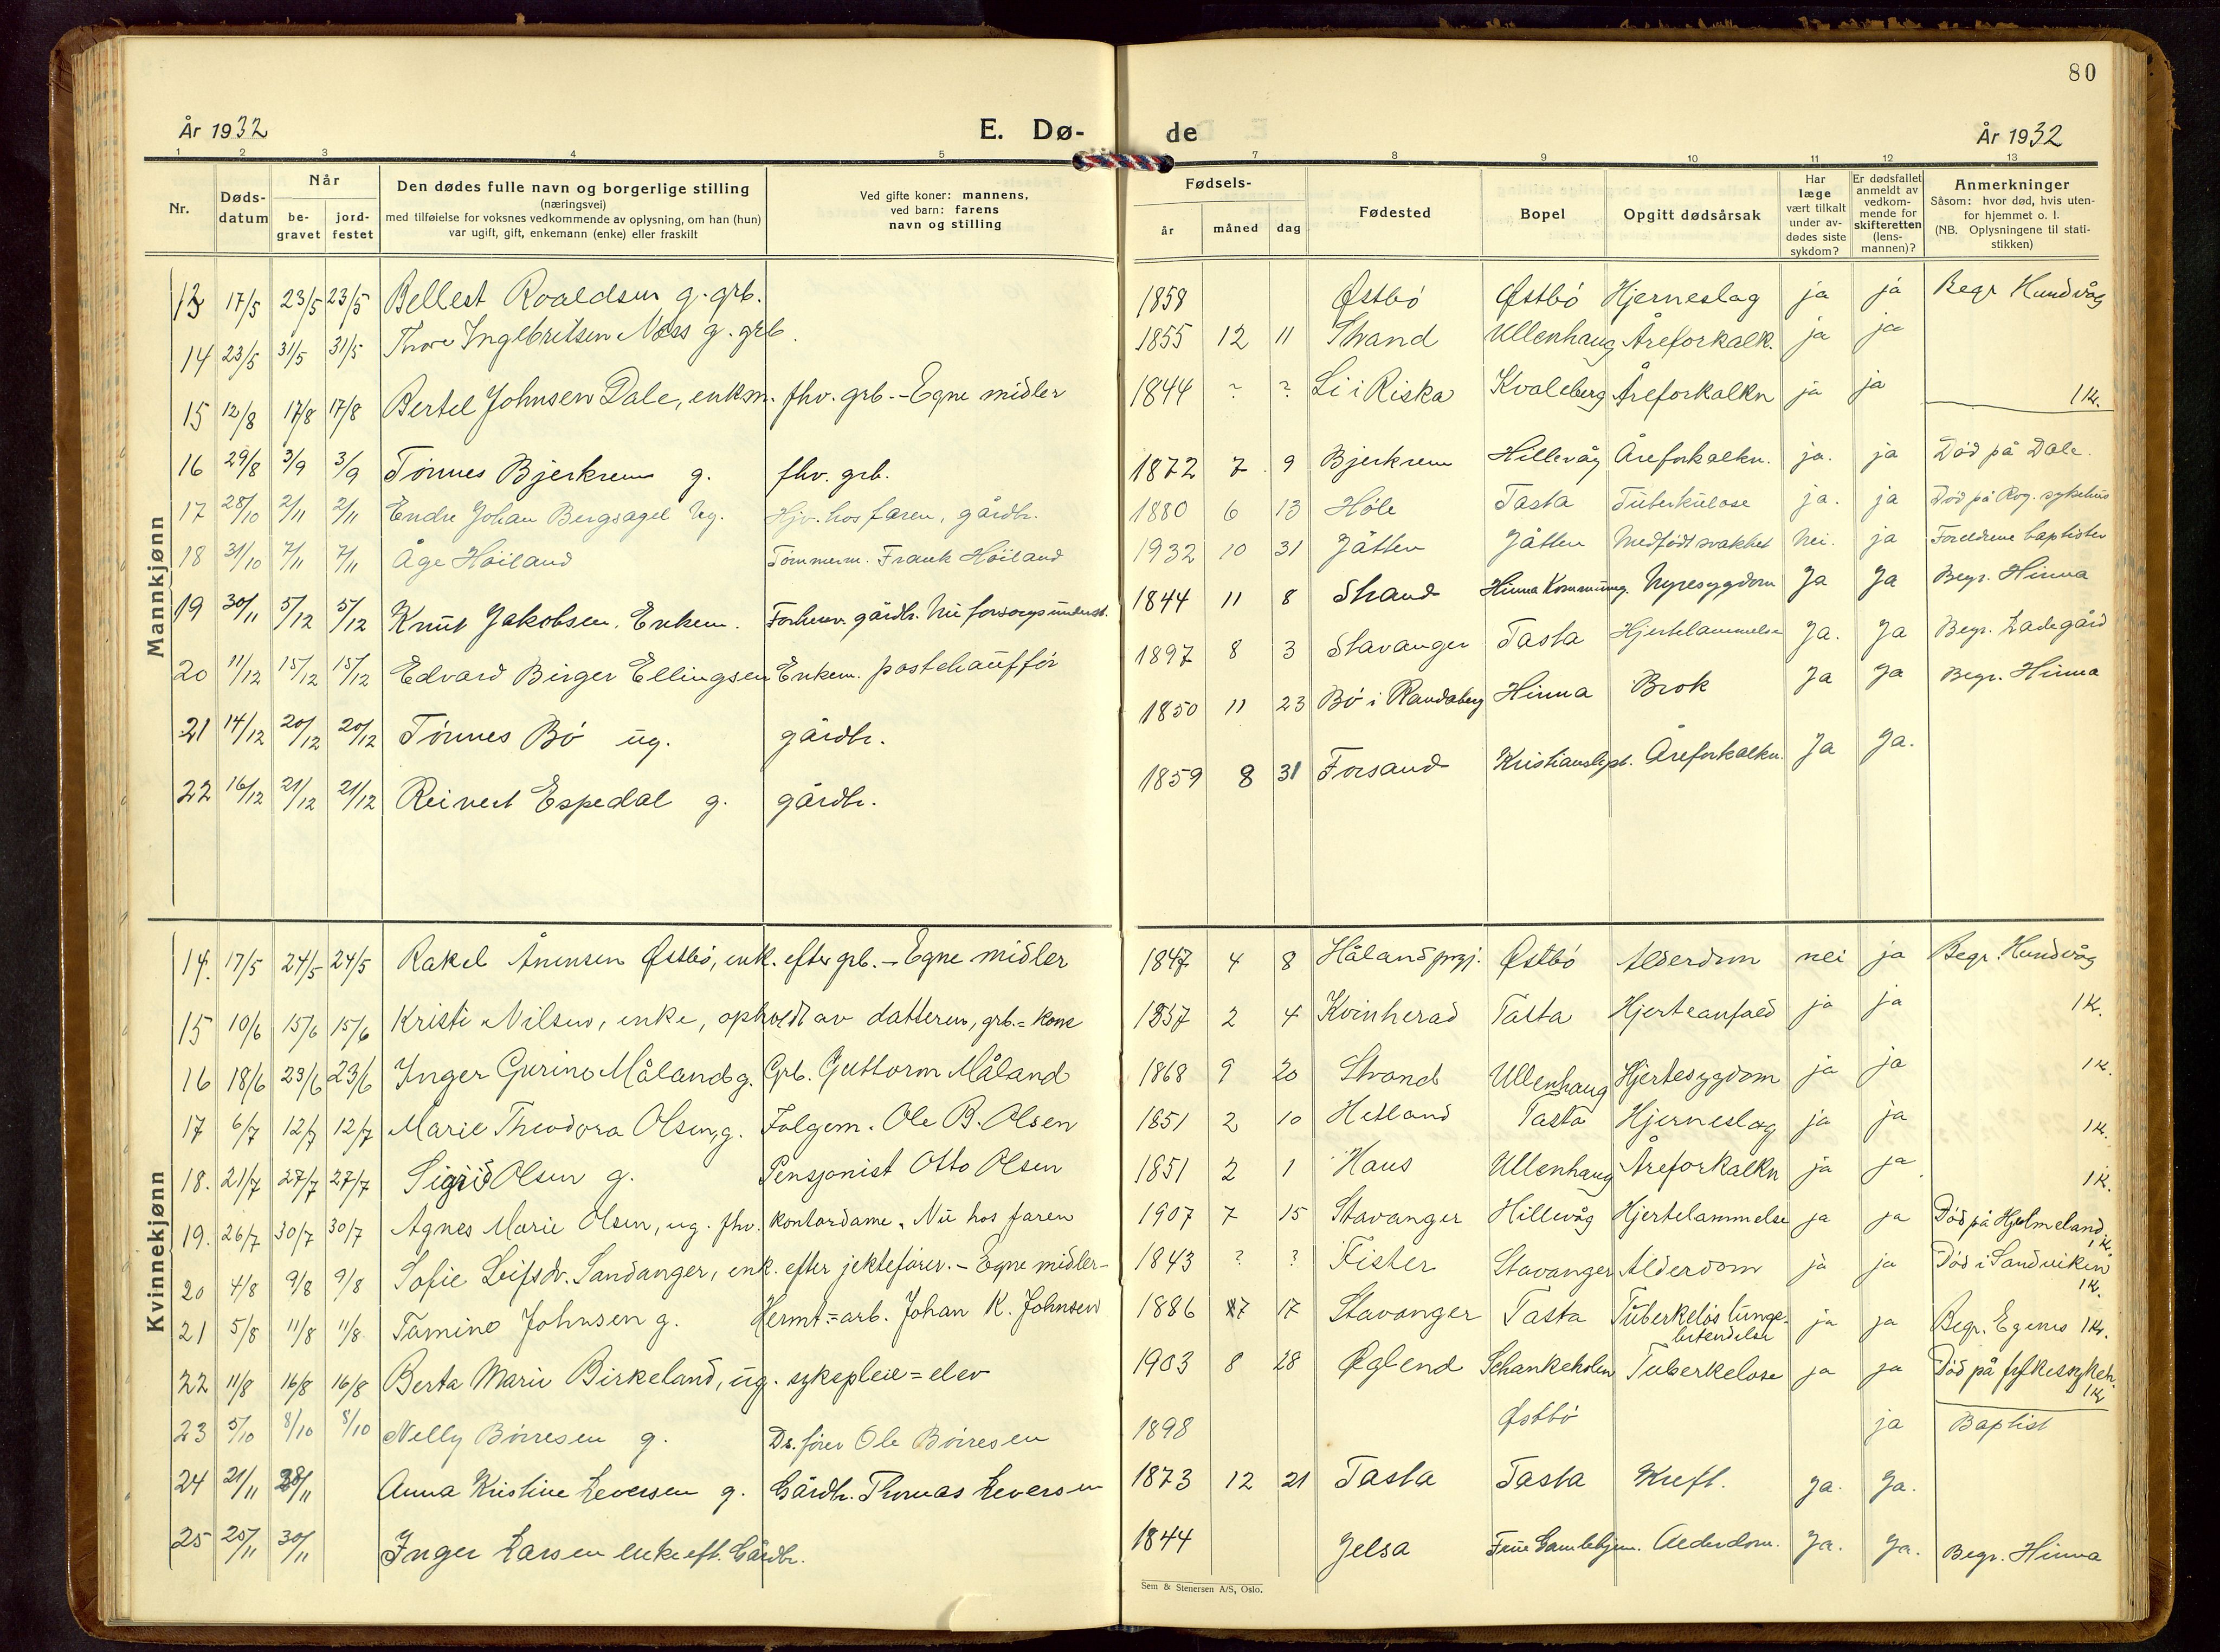 80
År 1932 E. Dø- de År 1932
1 2 3 4 5 7 8 9 10 11 12 13
Nr.
Døds-
datum
Når
be-
gravet
jord-
festet
Den dødes fulle navn og borgerlige stilling
(næringsvei)
med tilføielse for voksnes vedkommende av oplysning, om han (hun)
var ugift, gift, enkemann (enke) eller fraskilt
Ved gifte koner: mannens,
ved barn: farens
navn og stilling
Fødsels-
år måned dag
Fødested
Bopel
Opgitt dødsårsak
Har
læge
vært tilkalt
under av-
dødes siste
sykdom?
Er dødsfallet
anmeldt av
vedkom-
mende for
skifteretten
(lens-
mannen)?
Anmerkninger
Såsom: hvor død, hvis uten-
for hjemmet o. l.
(NB. Oplysningene til stati-
stikken)
Mannkjønn
13 17/5 23/5 23/5 Bellest Roaldsen g. grb. 1858 Østbö Østbö Hjerneslag ja ja Begr Hundvåg
14 23/5 31/5 31/5 Thore Ingebritsen Ness g. grb. 1855 12 11 Strand Ullenhaug Åreforkalk. ja ja
15 12/8 17/8 17/8 Bertel Johnsen Dale, enkem. fhv. grb. - Egne midler 1844 ? ? Li i Riska Kvaleberg Åreforkalkn ja ja 1 K.
16 29/8 3/9 3/9 Tönnes Bjerkrem g. fhv. grb. 1872 7 9 Bjerkrem Hillevåg Åreforkalkn. ja. ja Död på Dale.
17 28/10 2/11 2/11 Endre Johan Bergsagel Ug. Hjv. hos faren, gårdbr. 1880 6 13 Höle Tasta Tuberkulose ja. ja Död på Rog. sykehus
18 31/10 7/11 7/11 Åge Höiland Tömmerm. Frank Höiland 1932 10 31 Jåtten Jåtten Medfödt svakhet Nei. ja Foreldrene baptister
19 30/11 5/12 5/12 Knut Jakobsen, Enkem. Forhenv. gårdbr. Nu forsorgsunderst. 1844 11 8 Strand Hinna Kommuneg. Nyresygdom Ja Ja Begr. Hinna
20 11/12 15/12 15/12 Edvard Birger Ellingsen Enkem. postchaufför 1897 8 3 Stavanger Tasta Hjertelammelse Ja. Ja Begr. Ladegård
21 14/12 20/12 20/12 Tönnes Bö ug. gårdbr. 1850 11 23 Bö i Randaberg Hinna Brok Ja Ja Begr. Hinna
22 16/12 21/12 21/12 Reinert Espedal g. gårdbr. 1859 8 31 Forsand Åreforkalkn. Ja Ja.
Kvinnekjønn
14. 17/5 24/5 24/5 Rakel Ånensen Østbö, enk. efter grb. - Egne midler 1847 4 8 Håland prgj. Østbö Alderdom nei ja Begr. Hundvåg
15 10/6 15/6 15/6 Kristi Nilsen, enke, opholdt av datteren, grb.=kone 1857 2 4 Kvinherad Tasta Hjerteanfald ja ja 1 K.
16 18/6 23/6 23/6 Inger Gurine Måland g. Grb. Guttorm Måland 1868 9 20 Strand Ullenhaug Hjertesygdom ja ja 1 K.
17 6/7 12/7 12/7 Marie Theodora Olsen, g. Folgem. Ole B. Olsen 1851 2 10 Hetland Tasta Hjerneslag ja ja 1 K.
18. 21/7 27/7 27/7 Sigrid Olsen g. Pensjonist Otto Olsen 1851 2 1 Haus Ullenhaug Åreforkalkn ja ja 1 K.
19. 26/7 30/7 30/7 Agnes Marie Olsen, ug. fhv. kontordame. Nu hos faren 1907 7 15 Stavanger Hillevåg Hjertelammelse ja ja Död på Hjelmeland. 1 K.
20 4/8 9/8 9/8 Sofie Leifsdr. Sandanger, enk. efter jekteförer. - Egne midler- 1843 ? ? Fister Stavanger Alderdom ja ja Död i Sandviken 1 K.
21 5/8 11/8 11/8 Tamine Johnsen g. Hermt.=arb. Johan K. Johnsen 1886 7 17 Stavanger Tasta Tuberkelös lunge-
betendelse ja ja Begr. Egenes 1 K.
22 11/8 16/8 16/8 Berta Marie Birkeland, ug. sykepleie=elev 1903 8 28 Øglend Schankeholen Tuberkelose ja ja Död på fylkessykeh. 1 K.
23 5/10 8/10 8/10 Nelly Börresen g. Dr. förer Ole Börresen 1898 Østbö ja Baptist
24 21/11 28/11 Anna Kristine Leversen g. Gårdbr. Thomas Leversen 1873 12 21 Tasta Tasta Kreft. Ja. Ja.
25 25/11 30/11 Inger Larsen enke eft. Gårdbr. 1844 Jelsa Frue Gamlehjem. Alderdom. Ja. Ja. Begr. Hinna
Sem & Stenersen A/S, Oslo.